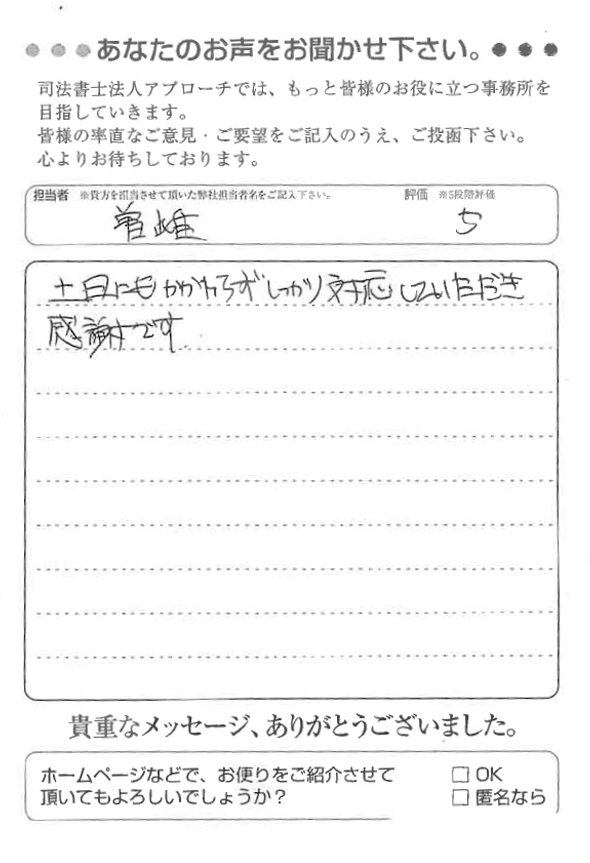 あなたのお声をお聞かせ下さい。
司法書士法人アプローチでは、もっと皆様のお役に立つ事務所を
目指していきます。
皆様の率直なご意見・ご要望をご記入のうえ、ご投函下さい。
心よりお待ちしております。
担当者 ※貴方を担当させて頂いた弊社担当者名をご記入下さい。 評価 ※5段階評価
5
土日にもかかわらずしっかり対応していただき
感謝です
貴重なメッセージ、ありがとうございました。
ホームページなどで、お便りをご紹介させて □ OK
頂いてもよろしいでしょうか? □ 匿名なら